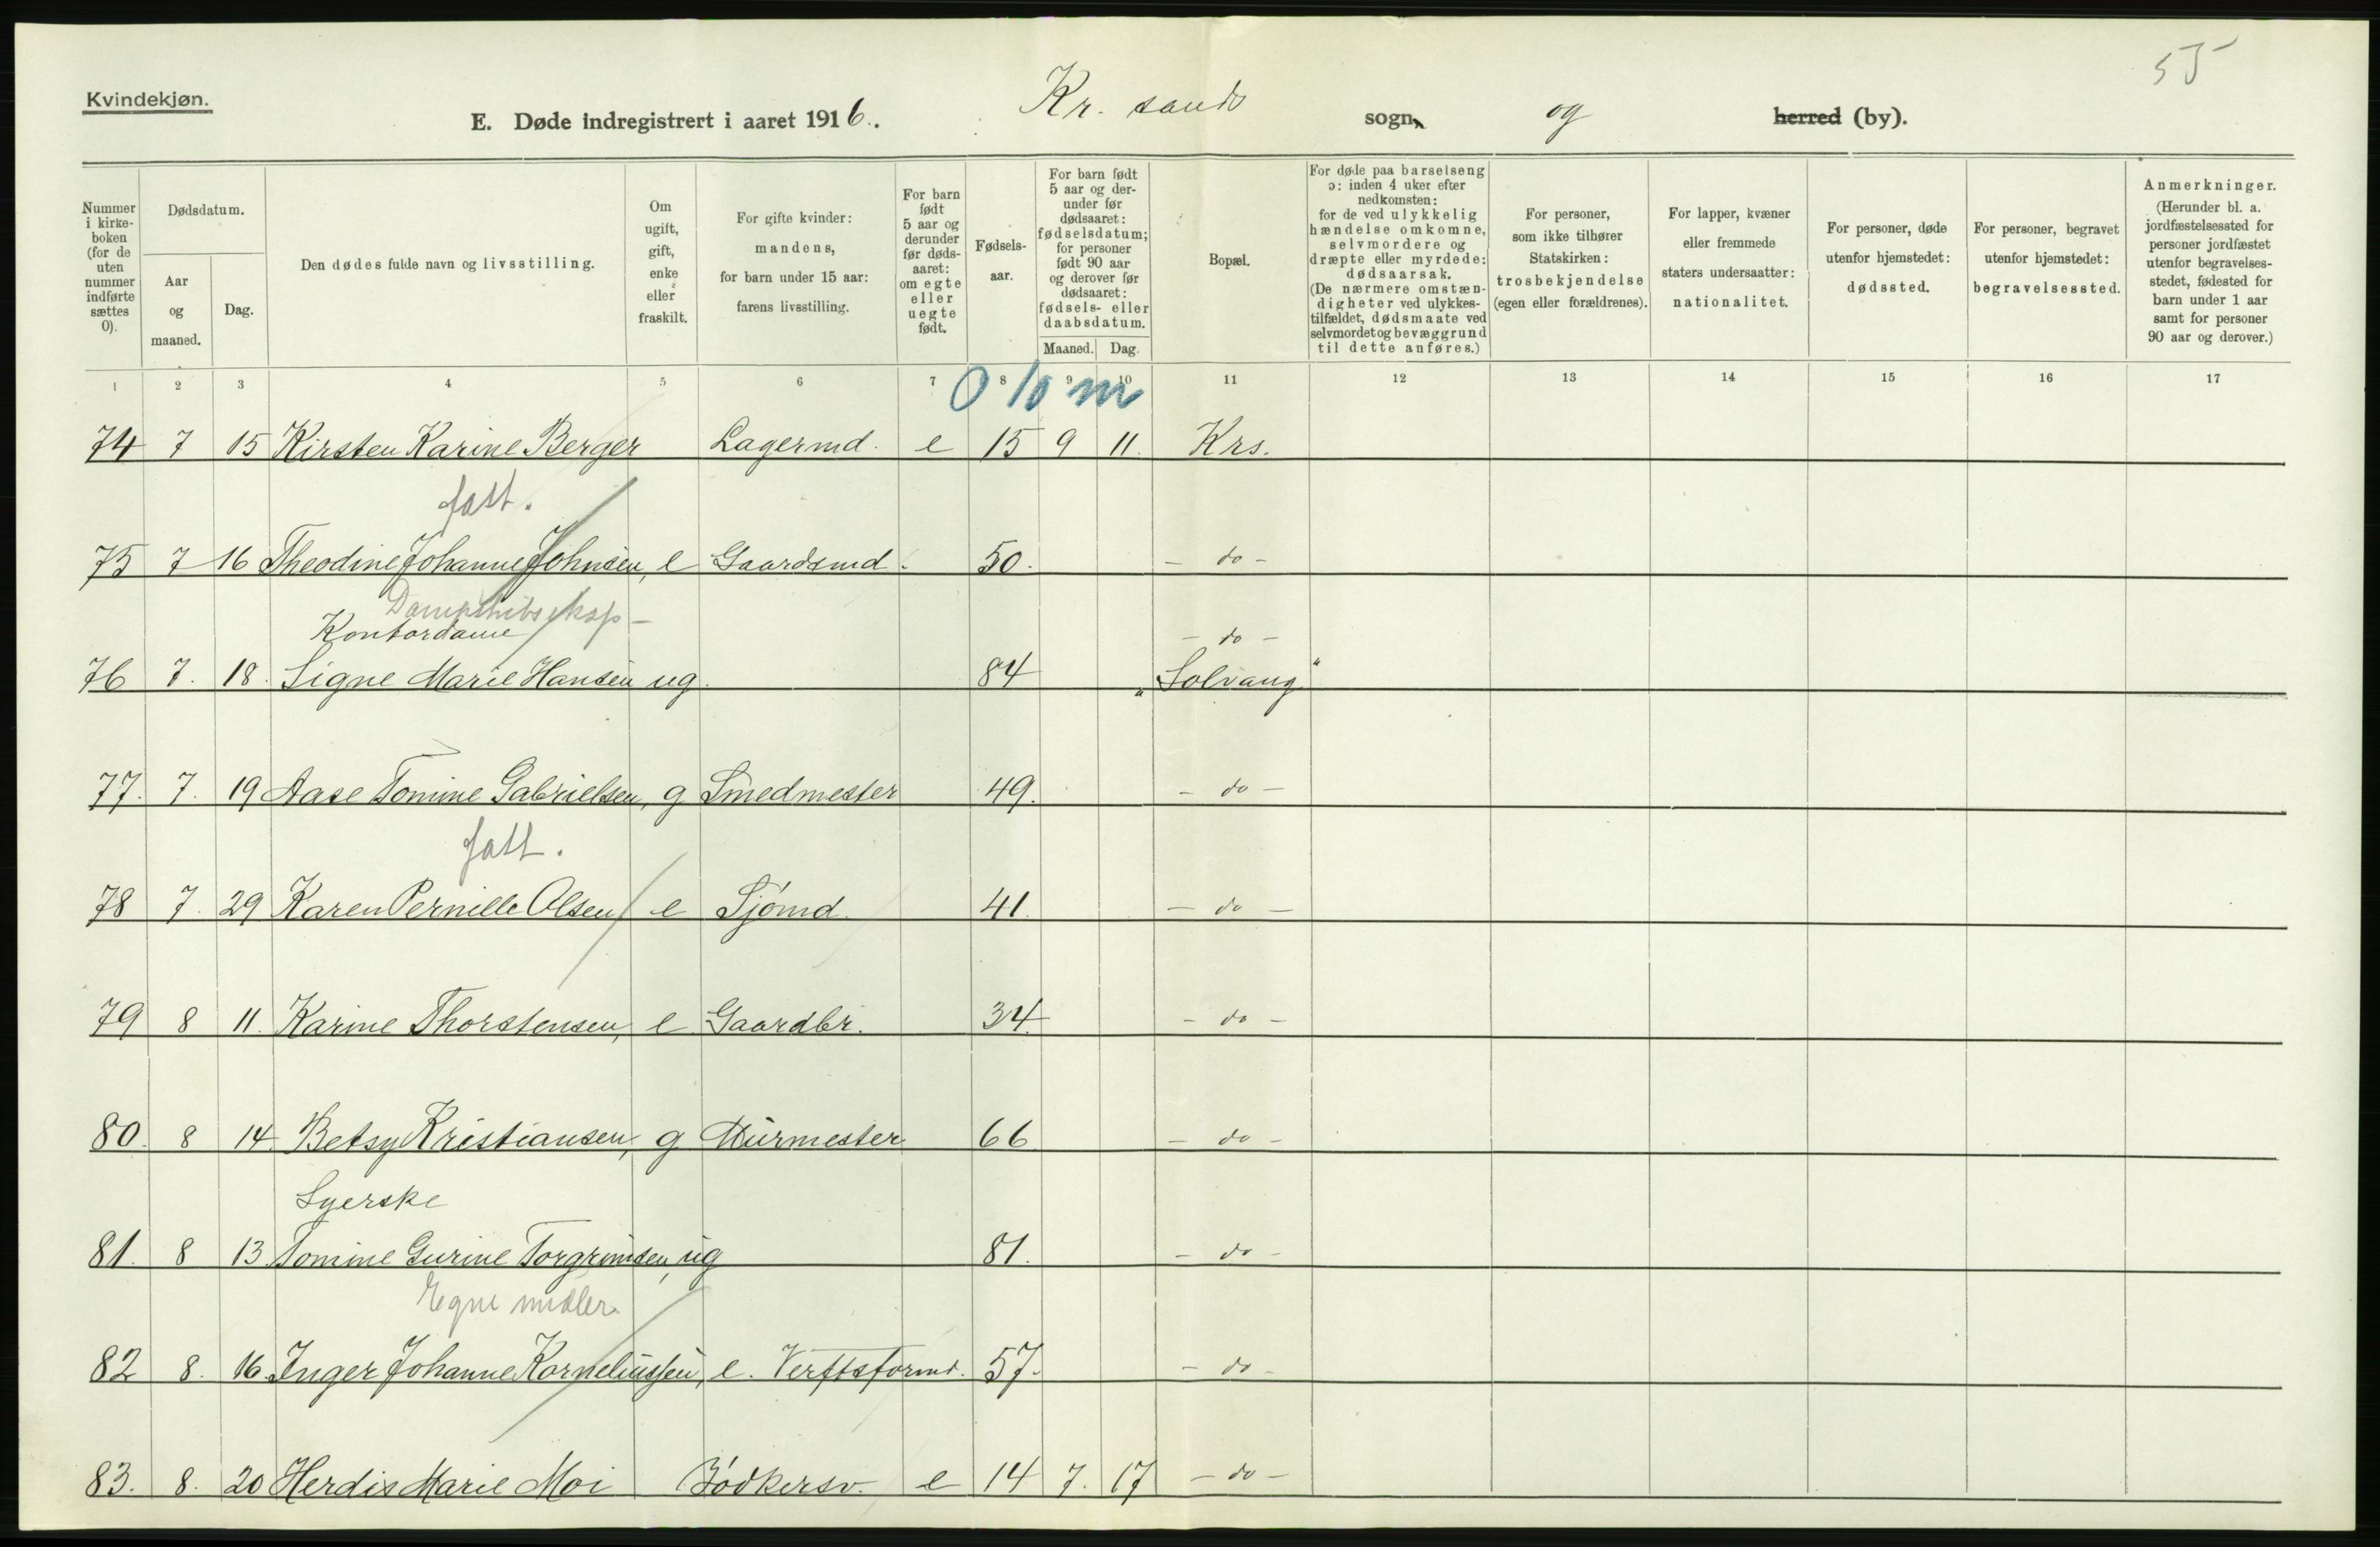 55
Kvindekjøn.
E. Døde indregistrert i aaret 1916. Kr. sands sogn, og herred (by).
Nummer i kirke-boken (for de uten nummer indførte sættes 0).
Dødsdatum.
Aar og maaned.
Dag.
Den dødes fulde navn og livsstilling.
Om ugift, gift, enke eller fraskilt.
For gifte kvinder: mandens, for barn under 15 aar: farens livsstilling.
For barn født 5 aar og derunder før døds-aaret: om egte eller uegte født.
Fødsels-aar.
For barn født 5 aar og der-under før dødsaaret: fødselsdatum; for personer født 90 aar og derover før dødsaaret: fødsels- eller daabsdatum.
Maaned. Dag.
Bopæl.
For døde paa barselseng ɔ: inden 4 uker efter nedkomsten: for de ved ulykkelig hændelse omkomne, selvmordere og dræpte eller myrdede: dødsaarsak. (De nærmere omstæn-digheter ved ulykkes-tilfældet, dødsmaate ved selvmordet og bevæggrund til dette anføres.)
For personer, som ikke tilhører Statskirken: trosbekjendelse (egen eller forældrenes).
For lapper, kvæner eller fremmede staters undersaatter: nationalitet.
For personer, døde utenfor hjemstedet: dødssted.
For personer, begravet utenfor hjemstedet: begravelsessted.
Anmerkninger. (Herunder bl. a. jordfæstelsessted for personer jordfæstet utenfor begravelses-stedet, fødested for barn under 1 aar samt for personer 90 aar og derover.)
1 2 3 4 5 6 7 8 9 10 11 12 13 14 15 16 17
0 10 m
74 7 15 Kirsten Karine Berger Lagermd. e 15 9 11. Krs.
fatt.
75 7 16 Theodine Johanne Johnsen, e Gaardsmd. 50. - do -
Dampskibsexksp-
Kontordame - do -
76 7. 18. Signe Marie Hansen ug. 84 "Solvang"
77. 7. 19 Aase Tomine Gabrielsen, g Smedmester 49. - do -
fatt.
78 7. 29 Karen Pernille Olsen e Sjømd. 41. - do -
79 8 11. Karine Thorstensen, e Gaardbr. 34. - do -
80. 8 14. Betsy Kristiansen, g Murmester 66 - do -
Syerske
81. 8 13. Tomine Gurine Torgrimsen, ug 81. - do -
Egne midler.
82 8. 16. Inger Johanne Korneliussen, e. Verftsformd. 57. - do -
83. 8. 20 Herdis Marie Moi Bødkersv. e 14 7. 17 - do -